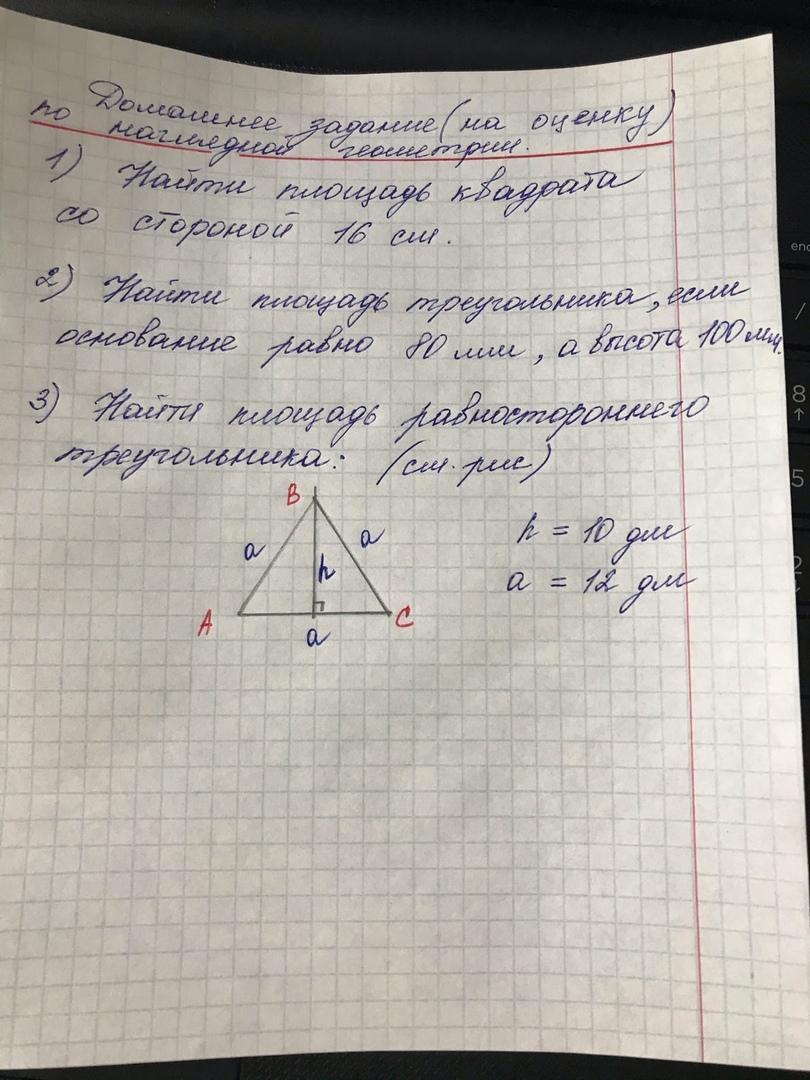 Домашнее задание (на оценку)
по наглядной геометрии.
1) Найти площадь квадрата
со стороной 16 см.
2) Найти площадь треугольника, если
основание равно 80 мм, а высота 100 мм.
3) Найти площадь равностороннего
треугольника: (см. рис)
B
h = 10 дм
a a
h
a = 12 дм
A C
a
end
/
8
↑
5
2